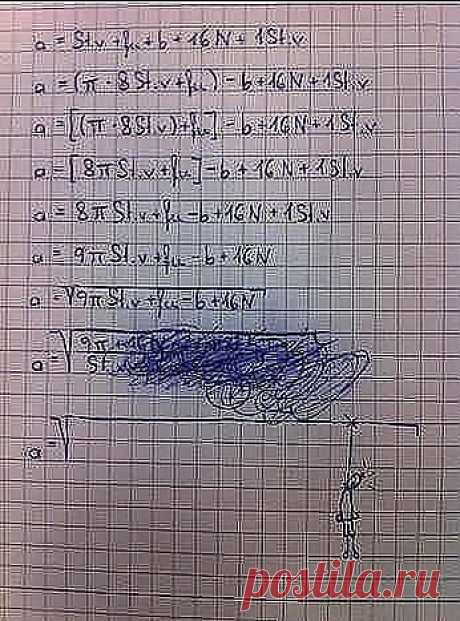 a = St.v + fu + b + 16N + 1St.v
a = (π · 8St.v + fu) - b + 16N + 1St.v
a = [(π · 8St.v) + fu] - b + 16N + 1St.v
a = [8πSt.v + fu] - b + 16N + 1St.v
a = 8πSt.v + fu - b + 16N + 1St.v
a = 9πSt.v + fu - b + 16N
a = √9πSt.v + fu - b + 16N
a = √9π + 16N
St.v
a = √
postila.ru